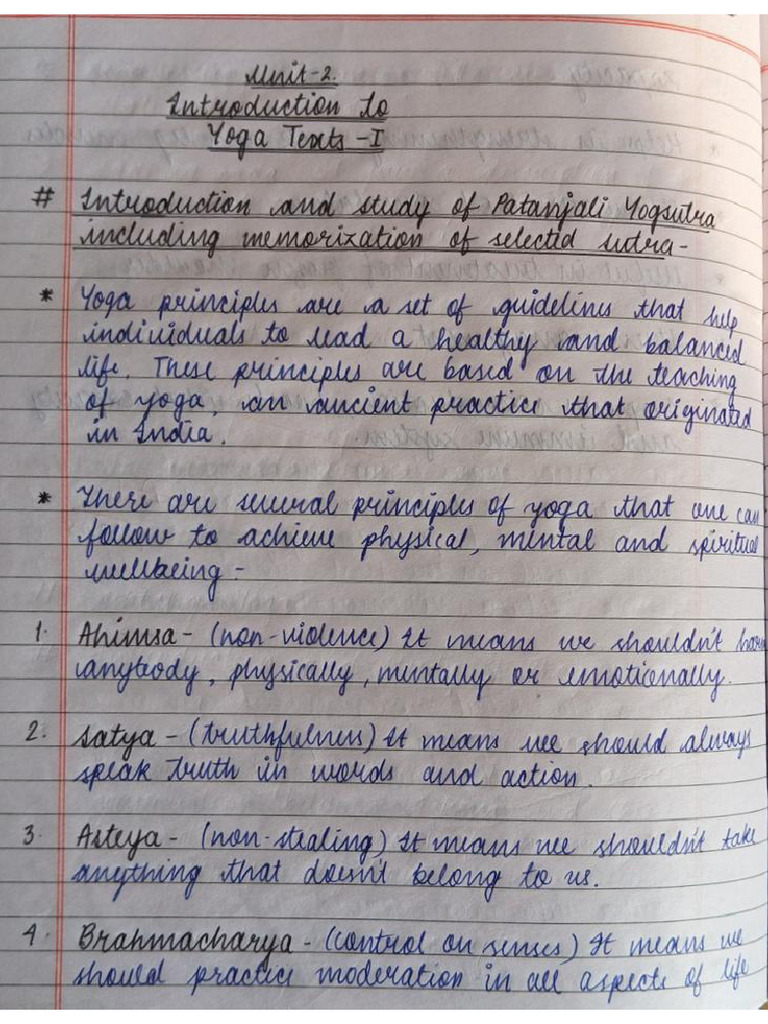 Unit-2.
Introduction to
Yoga Texts -I
# Introduction and study of Patanjali Yogsutra
including memorization of selected sutra-
* Yoga principles are a set of guidelines that help
individuals to lead a healthy and balanced
life. These principles are based on the teaching
of yoga, an ancient practice that originated
in India.
* There are several principles of yoga that one can
follow to achieve physical, mental and spiritual
wellbeing -
1. Ahimsa - (non-violence) It means we shouldn't harm
anybody, physically, mentally or emotionally.
2. Satya - (truthfulness) It means we should always
speak truth in words and action.
3. Asteya - (non-stealing) It means we shouldn't take
anything that doesn't belong to us.
4. Brahmacharya - (control on senses) It means we
should practice moderation in all aspects of life